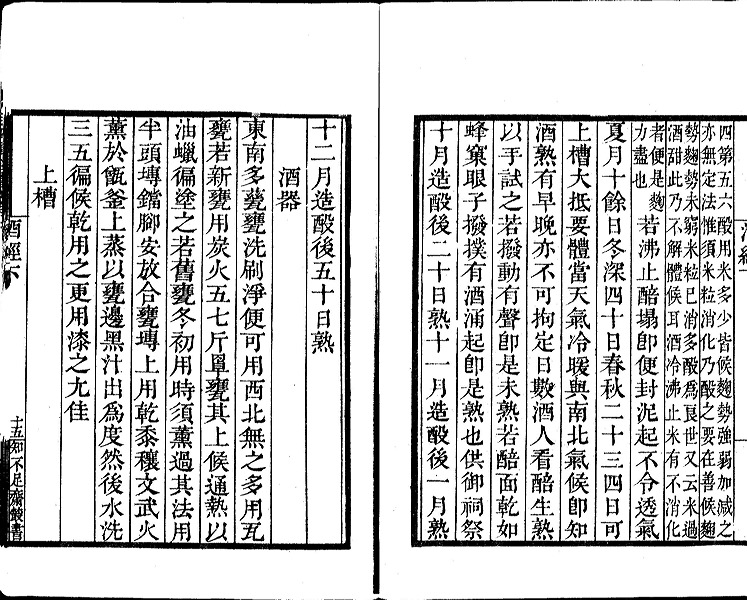 四第五六酘用米多少皆候麴勢強弱加減之
亦無定法惟須米粒消化乃酘之要在善候麴
勢麴勢未窮米粒巳消多酘爲良世又云米過
酒甜此乃不解體候耳酒冷沸止米有不消化
者便是麴
力盡也 若沸止醅塌卽便封泥起不令透氣
夏月十餘日冬深四十日春秋二十三四日可
上槽大抵要體當天氣冷暖與南北氣候卽知
酒熟有早晚亦不可拘定日數酒人看醅生熟
以手試之若撥動有聲卽是未熟若醅面乾如
蜂窠眼子撥撲有酒涌起卽是熟也供御祠祭
十月造酘後二十日熟十一月造酘後一月熟
十二月造酘後五十日熟
酒器
東南多甆甕洗刷淨便可用西北無之多用瓦
甕若新甕用炭火五七斤罩甕其上候通熱以
油蠟徧塗之若舊甕冬初用時須薰過其法用
半頭塼鐺腳安放合甕塼上用乾黍穰文武火
薰於甑釜上蒸以甕邊黑汁出爲度然後水洗
三五徧候乾用之更用漆之尤佳
上槽
酒經下
十五知不足齋叢書